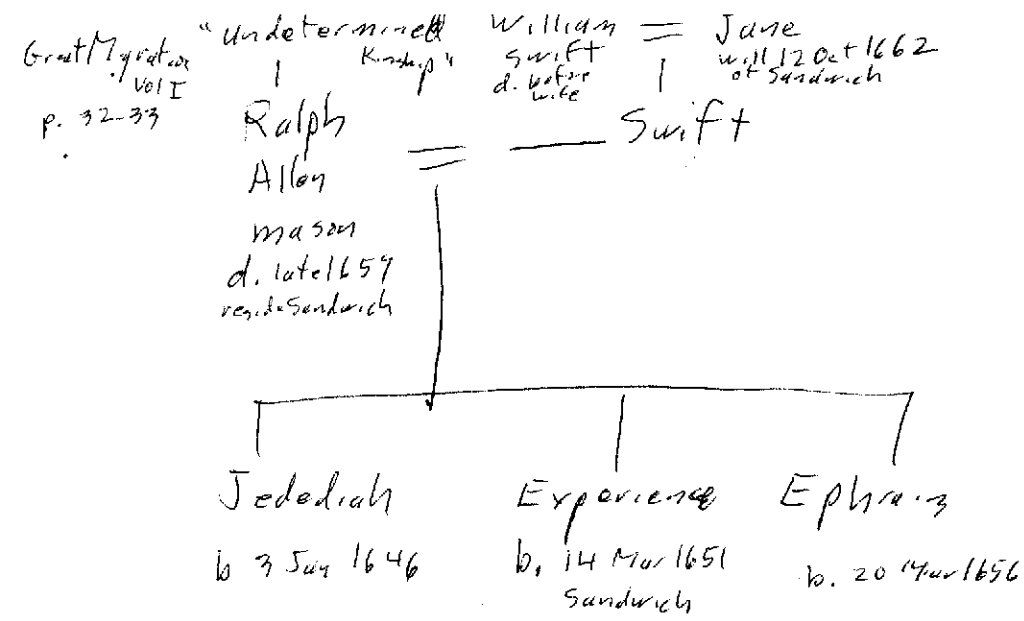 Great Migration
Vol I
p. 32-33
"Undetermined
Kinship"
William
Swift
d. before
wife
=
Jane
will 12 Oct 1662
of Sandwich
Ralph
Allen
mason
d. late 1659
reside Sandwich
=
— Swift
Jedediah
b 3 Jan 1646
Experience
b. 14 Mar 1651
Sandwich
Ephraim
b. 20 Mar 1656